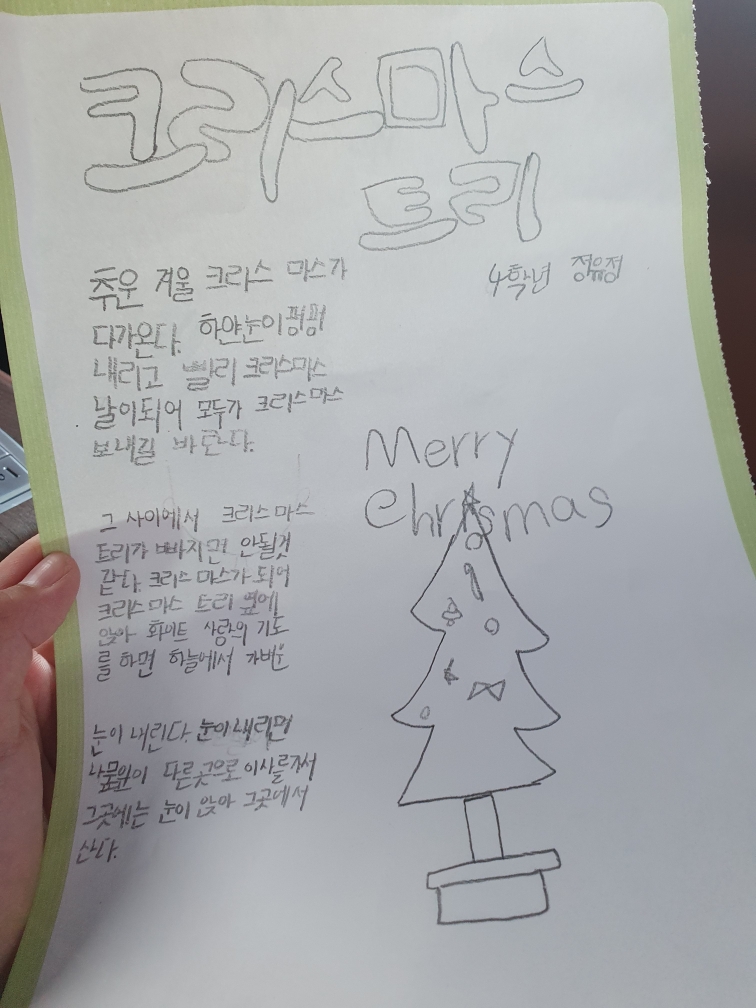 크리스마스
트리
4학년 정유정
추운 겨울 크리스 마스가
다가온다. 하얀눈이 펑펑
내리고 빨리 크리스마스
날이되어 모두가 크리스마스
보내길 바란다.
그 사이에서 크리스 마스
트리가 빠지면 안될것
같다. 크리스 마스가 되어
크리스 마스 트리 옆에
앉아 화이트 사랑의 기도
를 하면 하늘에서 가벼운
눈이 내린다. 눈이 내리면
이 다른곳으로 이사를가서
그곳에는 눈이 앉아 그곳에서
산다.
Merry
Christmas